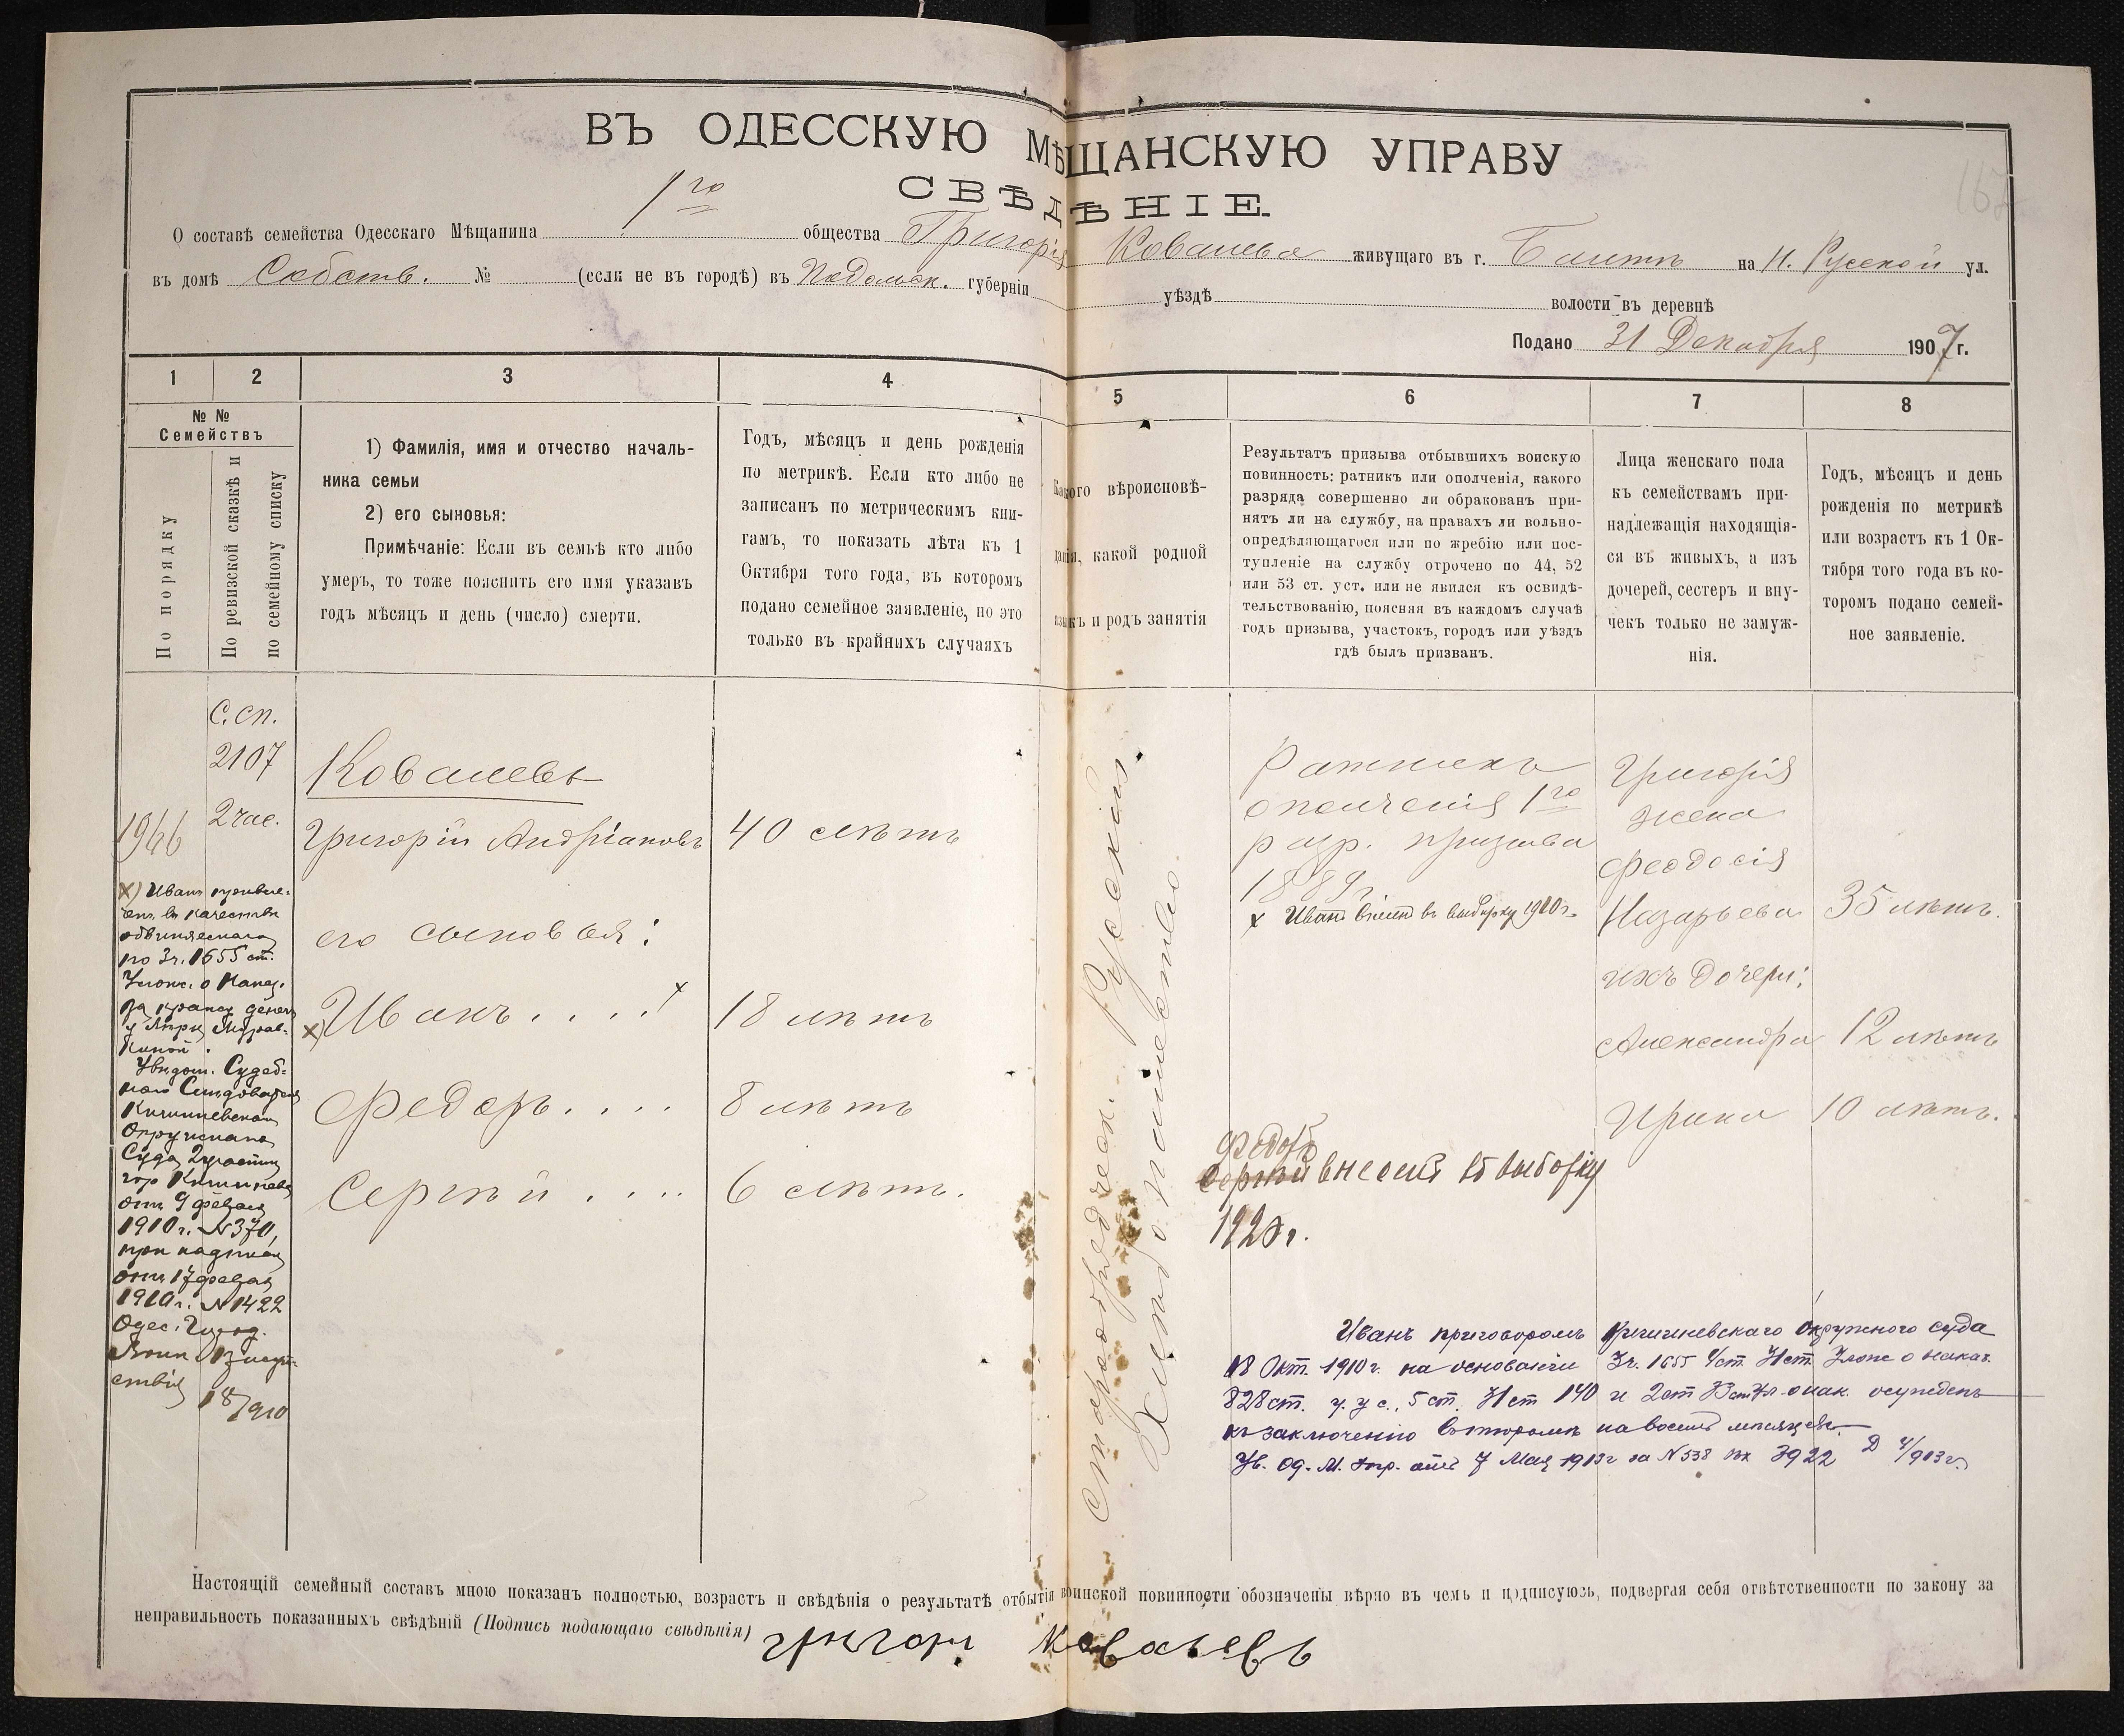 ВЪ ОДЕССКУЮ МѢЩАНСКУЮ УПРАВУ
СВѢДѢНІЕ.
О составѣ семейства Одесскаго Мѣщанина 1го общества Григорія Ковалева живущаго въ г. Балтѣ на Н. Русской ул.
въ домѣ Собств. № (если не въ городѣ) въ Подольск. губерніи уѣздѣ волости въ деревнѣ
Подано 31 Декабря 1907 г.
1 2 3 4 5 6 7 8
№ №
Семействъ
По порядку
По ревизской сказкѣ и
по семейному списку
1) Фамилія, имя и отчество началь-
ника семьи
2) его сыновья:
Примѣчаніе: Если въ семьѣ кто либо
умеръ, то тоже пояснить его имя указавъ
годъ мѣсяцъ и день (число) смерти.
Годъ, мѣсяцъ и день рожденія
по метрикѣ. Если кто либо не
записанъ по метрическимъ кни-
гамъ, то показать лѣта къ 1
Октября того года, въ которомъ
подано семейное заявленіе, но это
только въ крайнихъ случаяхъ
Какого вѣроисновѣ-
данія, какой родной
языкъ и родъ занятія
Результатъ призыва отбывшихъ воискую
повинность: ратникъ или ополченія, какого
разряда совершенно ли обракованъ при-
нятъ ли на службу, на правахъ ли вольно-
опредѣляющагося или по жребію или пос-
тупленіе на службу отрочено по 44, 52
или 53 ст. уст. или не явился къ освидѣ-
тельствованію, поясняя въ каждомъ случаѣ
годъ призыва, участокъ, городъ или уѣздъ
гдѣ былъ призванъ.
Лица женскаго пола
къ семействамъ при-
надлежащія находящія-
ся въ живыхъ, а изъ
дочерей, сестеръ и вну-
чекъ только не замуж-
нія.
Годъ, мѣсяцъ и день
рожденія по метрикѣ
или возрастъ къ 1 Ок-
тября того года въ ко-
торомъ подано семей-
ное заявленіе.
С. сп.
2107
2 час.
1966
Ковалевъ
Григорій Андріановъ 40 лѣтъ
его сыновья:
Иванъ . . . . 18 лѣтъ
Федоръ . . . . 8 лѣтъ
Сергѣй . . . . 6 лѣтъ.
х) Иванъ привле-
ченъ въ качествѣ
обвиняемаго
по 3 ч. 1655 ст.
Улож. о Наказ.
за кражу денегъ
Увѣдом. Судеб-
наго Слѣдователя
Кишиневскаго
Окружнаго
Суда 2 участка
гор Кишинева
отъ 9 февраля
1910 г. № 370,
при надписи
отъ 17 февраля
1910 г. № 1422
Одес. Город.
Воин. Присут-
ствія
18/910
Старообрядческ. Русскій
Хлѣбопашество.
Ратникъ
ополченія 1го
разр. призыва
1889 г.
х Иванъ внесенъ въ выборку 1910 г.
Федоръ
Сергѣй внесенъ въ выборку
1920 г.
Григорія
жена
Феодосія
Назарьева 35 лѣтъ.
ихъ дочери:
Александра 12 лѣтъ
Ирина 10 лѣтъ.
Иванъ приговоромъ Кишиневскаго Окружного суда
18 Окт. 1910 г. на основаніи 3 ч. 1655 Улож о наказ.
828 ст. у. у. с., 5 ст. 140 и 2 ст осужденъ
къ заключенію въ тюрьмѣ на восемь мѣсяцевъ.
Ув. Од. М. Упр. отъ 7 Мая 1913 г за № 538 вх 3922
Настоящій семейный составъ мною показанъ полностью, возрастъ и свѣдѣнія о результатѣ отбытія воинской повинности обозначены вѣрно въ чемъ и подписуюсь, подвергая себя отвѣтственности по закону за
неправильность показанныхъ свѣдѣній (Подпись подающаго свѣдѣнія) Григори Ковалевъ